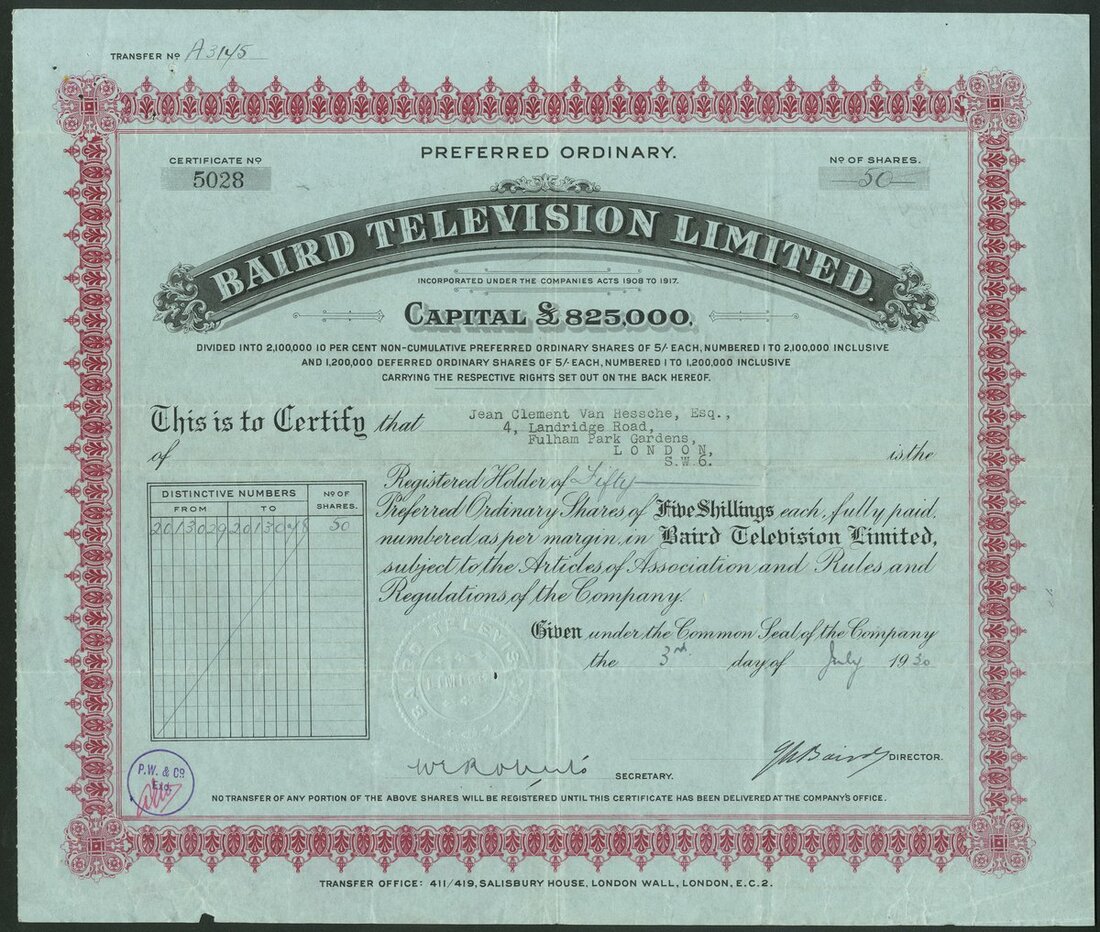 TRANSFER No A3145
PREFERRED ORDINARY.
CERTIFICATE No
5028
No OF SHARES.
50
BAIRD TELEVISION LIMITED.
INCORPORATED UNDER THE COMPANIES ACTS 1908 TO 1917.
CAPITAL £825,000,
DIVIDED INTO 2,100,000 10 PER CENT NON-CUMULATIVE PREFERRED ORDINARY SHARES OF 5/- EACH, NUMBERED 1 TO 2,100,000 INCLUSIVE
AND 1,200,000 DEFERRED ORDINARY SHARES OF 5/- EACH, NUMBERED 1 TO 1,200,000 INCLUSIVE
CARRYING THE RESPECTIVE RIGHTS SET OUT ON THE BACK HEREOF.
This is to Certify that Jean Clement Van Hessche, Esq.,
4, Landridge Road,
Fulham Park Gardens,
LONDON,
of S.W.6. is the
Registered Holder of Fifty
Preferred Ordinary Shares of Five Shillings each, fully paid,
numbered as per margin, in Baird Television Limited,
subject to the Articles of Association and Rules and
Regulations, of the Company.
DISTINCTIVE NUMBERS
FROM TO
No OF SHARES.
2013029 2013078 50
Given under the Common Seal of the Company
the 3rd day of July 1930
BAIRD TELEVISION LIMITED
P.W. & Co
W E Roberts SECRETARY.
J L Baird DIRECTOR.
NO TRANSFER OF ANY PORTION OF THE ABOVE SHARES WILL BE REGISTERED UNTIL THIS CERTIFICATE HAS BEEN DELIVERED AT THE COMPANY'S OFFICE.
TRANSFER OFFICE: 411/419, SALISBURY HOUSE, LONDON WALL, LONDON, E.C.2.